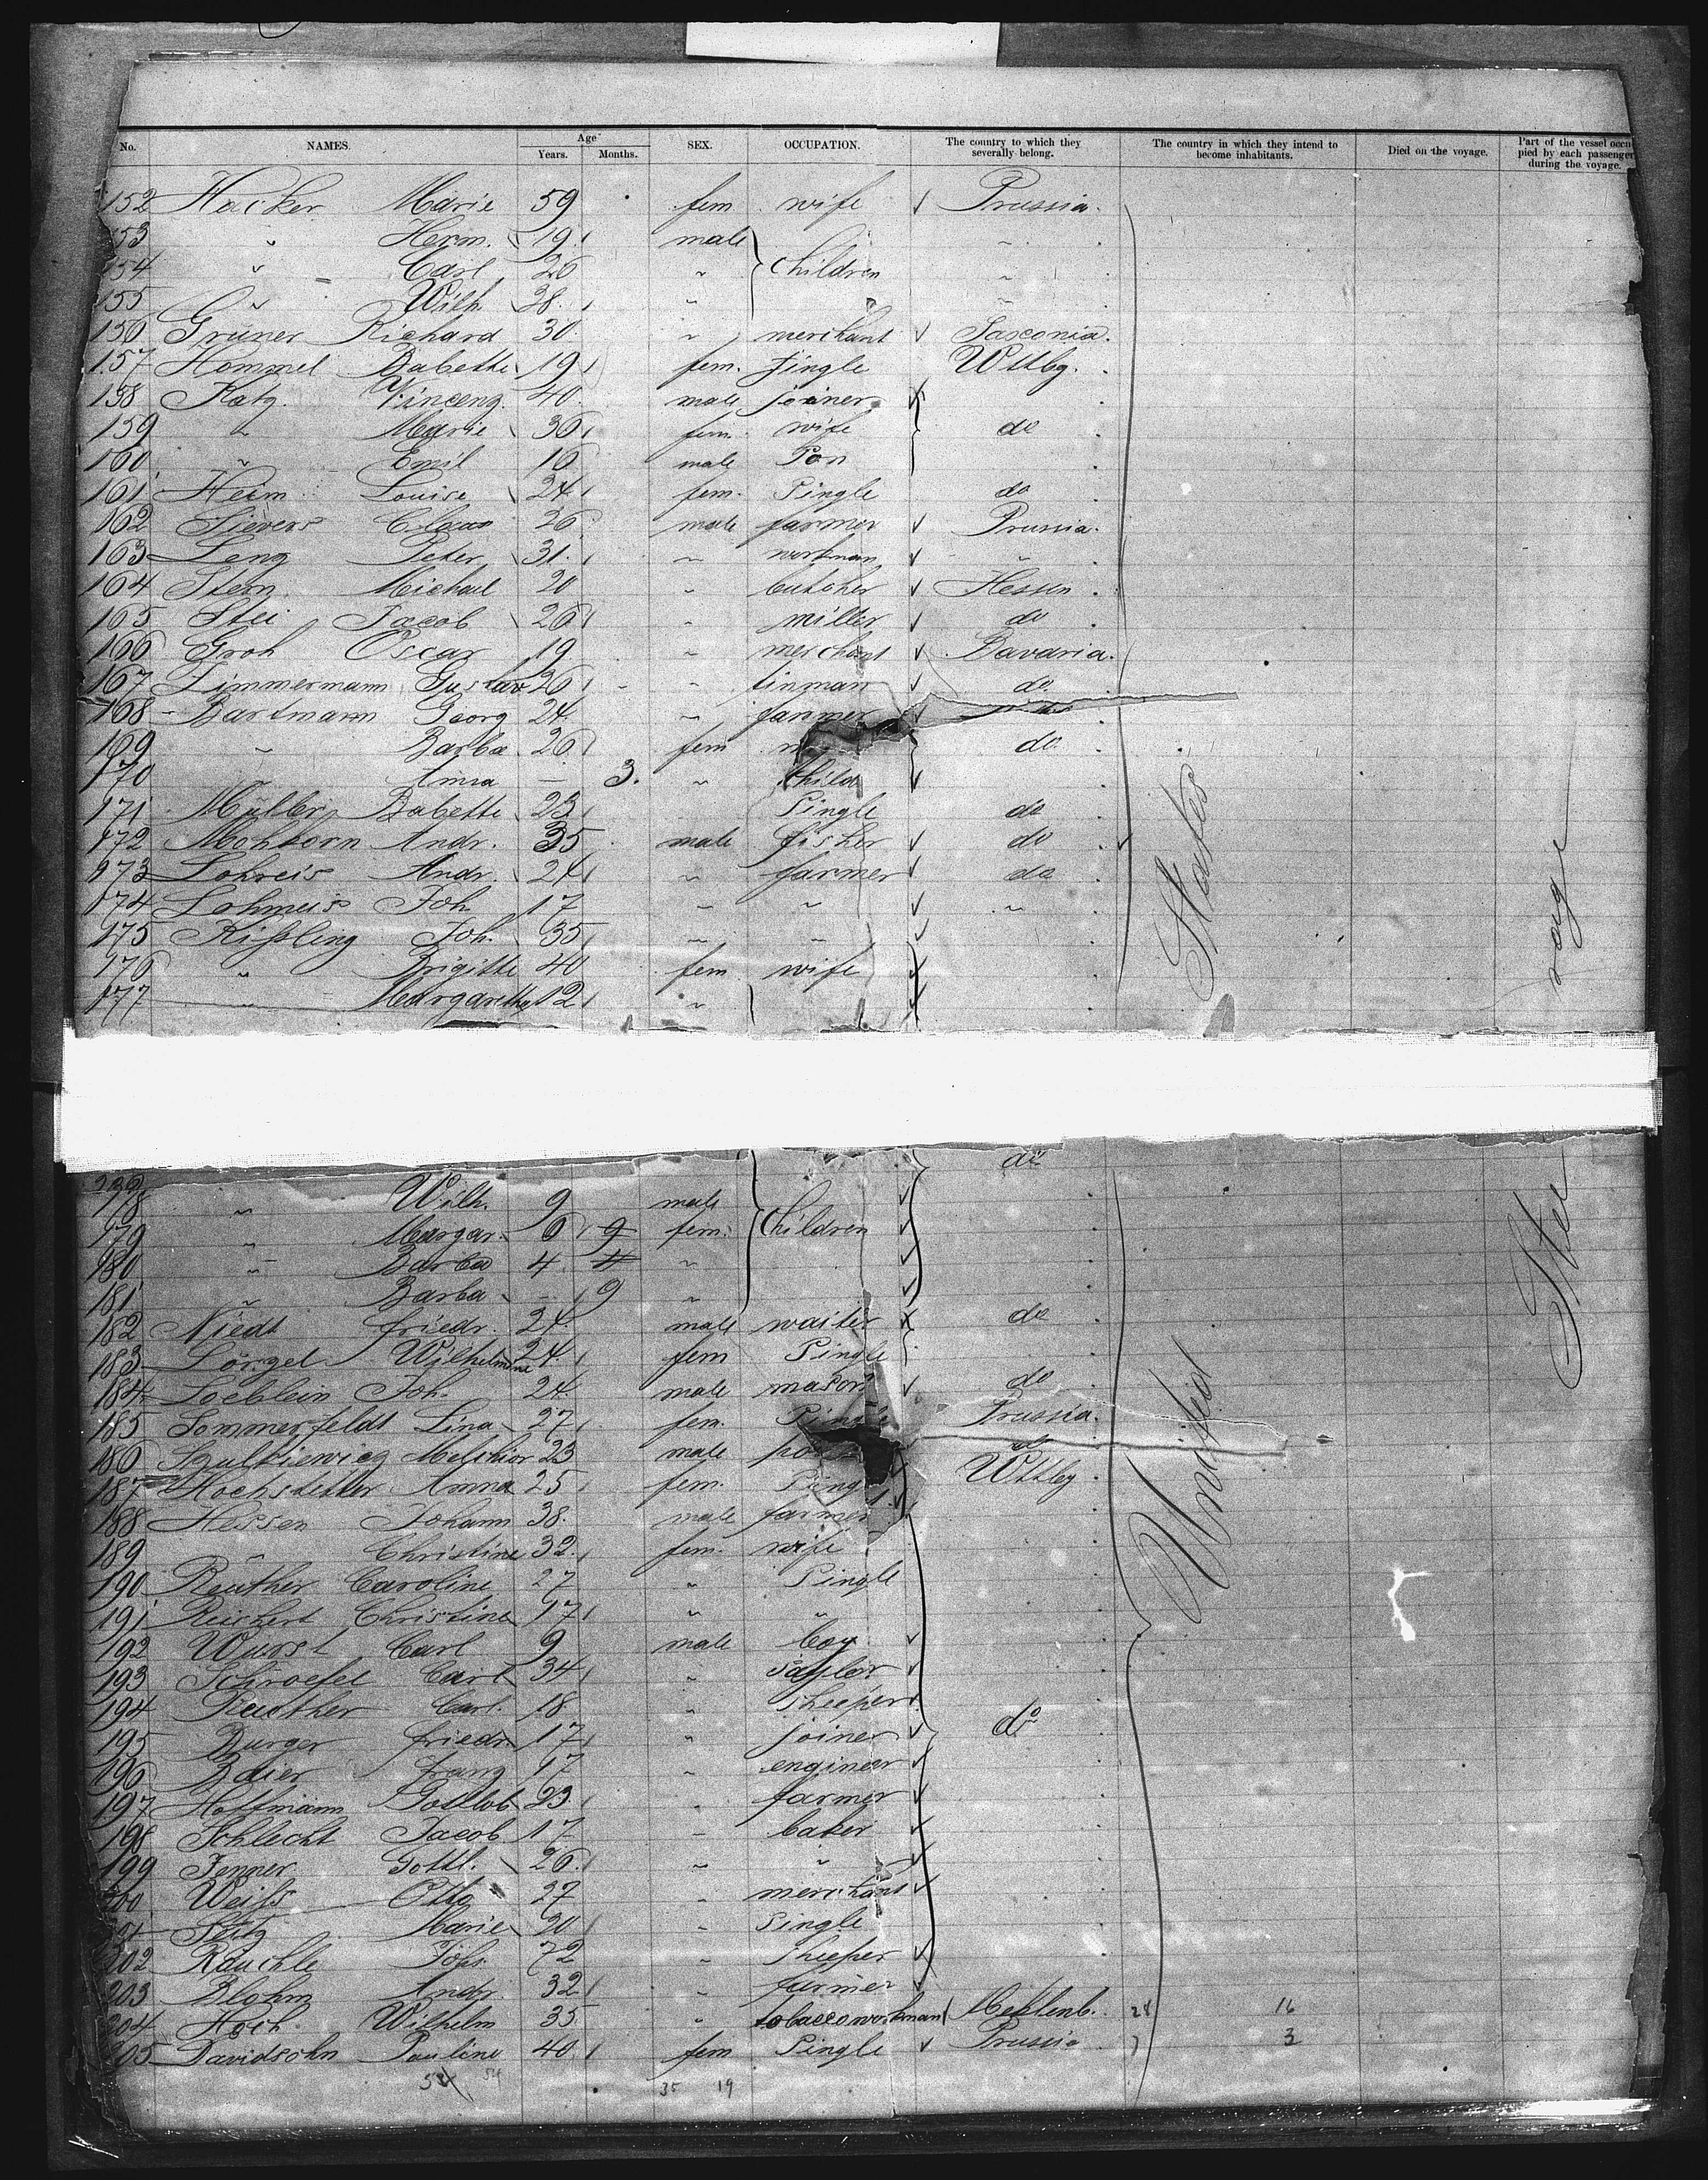 No. NAMES. Age Years. Months. SEX. OCCUPATION. The country to which they severally belong. The country in which they intend to become inhabitants. Died on the voyage. Part of the vessel occupied by each passenger during the voyage.
152 Hacker Marie 59 fem wife Prussia.
153 " Herm. 19 male
154 " Carl 26 " Children "
155 " Wilh. 28 "
156 Gruner Richard 30 " merchant Saxonia.
157 Hommel Babette 19 fem. Single Wttbg.
158 Katz Vincenz 40 male joiner
159 " Marie 36 fem. wife do
160 " Emil 16 male Son
161 Heim Louise 24 fem. Single do
162 Sievers Claus 26 male farmer Prussia.
163 Leng Peter 31 " workman "
164 Stern Michael 20 " butcher Hessen
165 Stei Jacob 26 " miller do
166 Groh Oscar 19 " merchant Bavaria.
167 Zimmermann Gustav 26 " tinman do
168 Bartmann Georg 24 " farmer
169 " Barba 26 fem do
170 " Anna — 3. " Child
171 Müller Babette 23 Single do
172 Mohkorn Andr. 35 male fisher do
173 Lohreis Andr. 24 " farmer do
174 Lohmeis Joh 17 " " "
175 Kißling Joh. 35 " "
176 " Brigitte 40 fem wife
177 " Margarethe 12 "
States
do
178 " Wilh. 9 male
179 " Margar. 6 9 fem. Children
180 " Barba 4 4 "
181 " Barba - 9 "
182 Niedt Friedr. 24 male waiter do
183 Lörgel Wilhelmine 24 fem Single
184 Loeblein Joh. 24 male mason do
185 Sommerfeldt Lina 27 fem. Single Prussia.
186 Szulkiewicz Melchior 23 male do
187 Hochstetter Anna 25 fem. Single Wttbg
188 Hessen Johann 38. male farmer
189 " Christine 32 fem. wife
190 Reuther Caroline 27 " Single
191 Reichert Christine 17 " "
192 Wurst Carl 9 male boy
193 Schroefel Carl 34 " taylor
194 Reuther Carl. 18 " Sheeper
195 Burger Friedr. 17 " joiner do
196 Baier Franz 17 " engineer
197 Hoffmann Gottlob 23 " farmer
198 Schlecht Jacob 17 " baker
199 Jenner Gottl. 26 " "
200 Weiß Otto 27 " merchant
201 Stitz Marie 20 " Single
202 Rauchle Johs. 72 " Sheeper
203 Blohm Andr. 32 " farmer
204 Hoch Wilhelm 35 " tobaccoworkman Mecklenb. 28 16
205 Davidsohn Pauline 40 fem Single Prussia 3
United
54 54 35 19